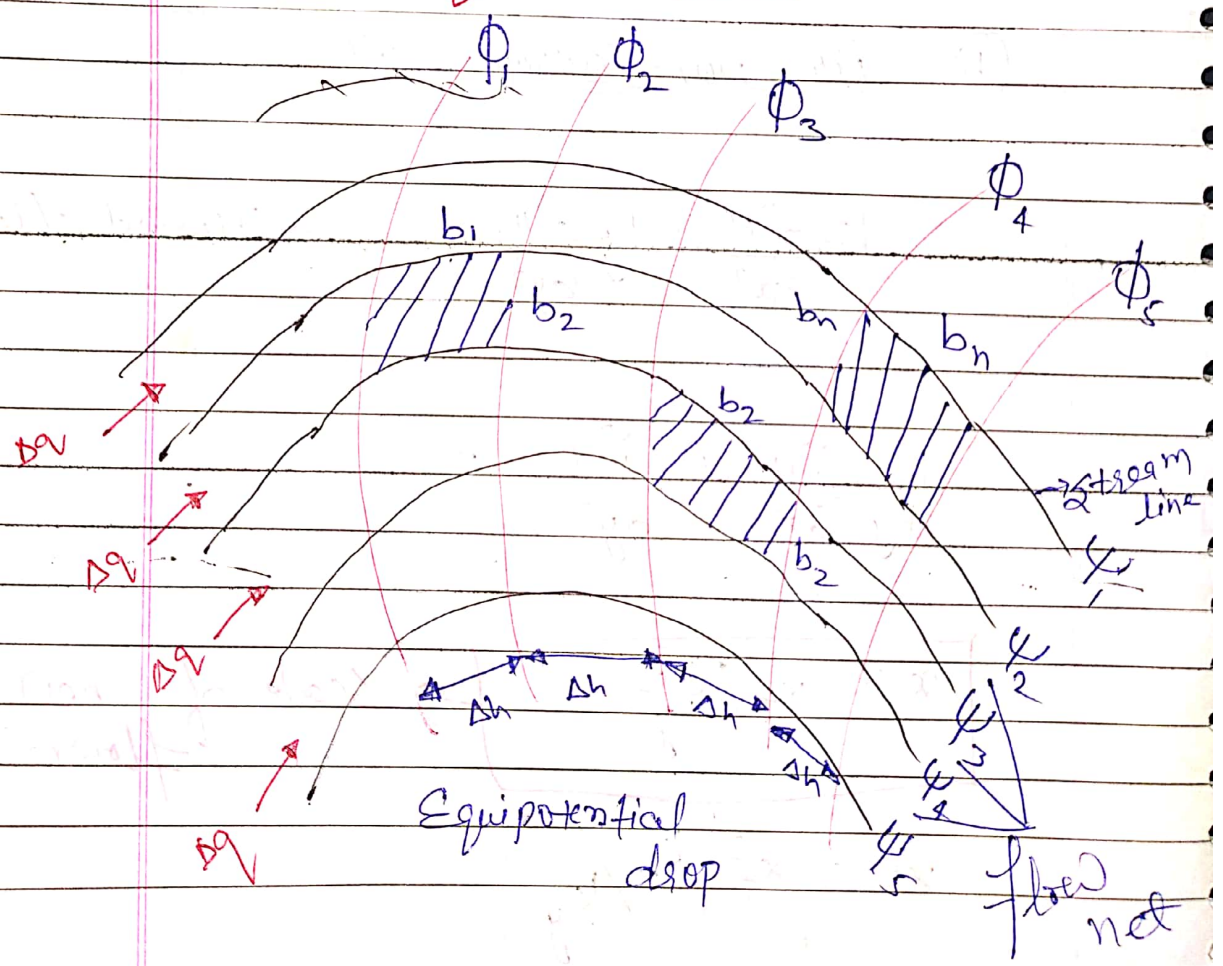 ϕ1
ϕ2
ϕ3
ϕ4
ϕ5
b1
b2
bn
bn
b2
b2
Δq
Δq
Δq
Δq
→ Stream
line
ψ1
ψ2
ψ3
ψ4
ψ5
Δh
Δh
Δh
Δh
Equipotential
drop
flow
net